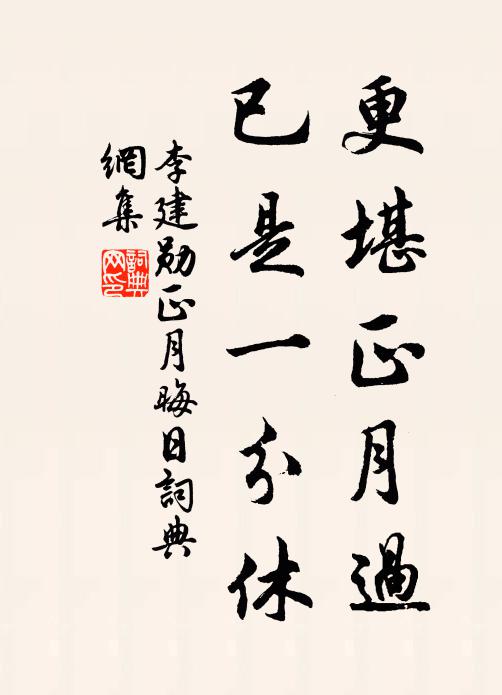 更堪正月過
已是一分休
李建勛正月晦日詞典
網集
詞典
网印